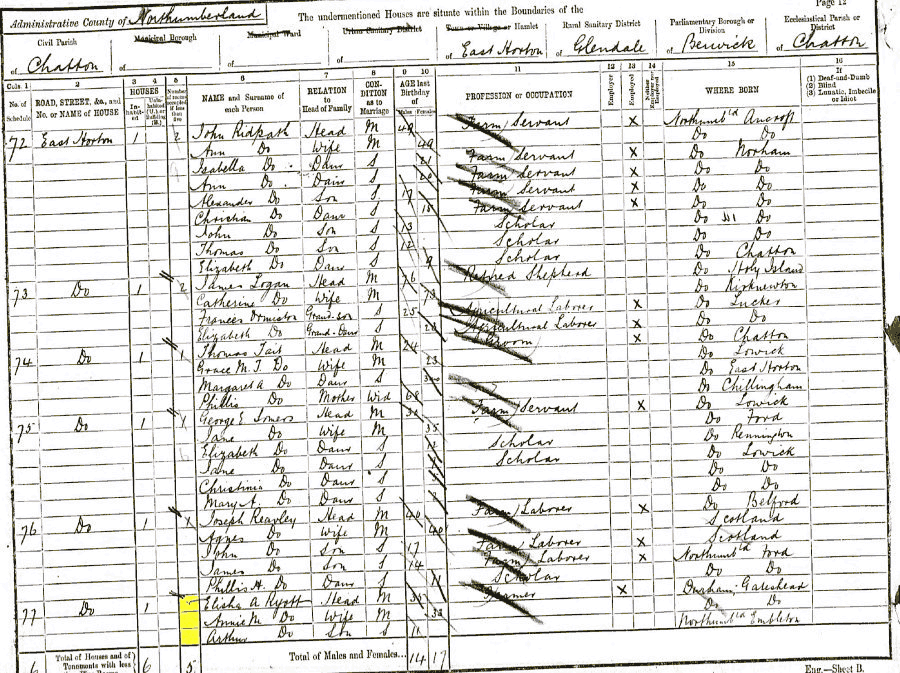 Page 12
Administrative County of Northumberland
The undermentioned Houses are situate within the Boundaries of the
Civil Parish of Chatton
Municipal Borough of
Municipal Ward of
Urban Sanitary District of
Town or Village or Hamlet of East Horton
Rural Sanitary District of Glendale
Parliamentary Borough or Division of Berwick
Ecclesiastical Parish or District of Chatton
Cols. 1 2 3 4 5 6 7 8 9 10 11 12 13 14 15 16
No. of Schedule
ROAD, STREET, &c., and No. or NAME of HOUSE
HOUSES
NAME and Surname of each Person
RELATION to Head of Family
CONDITION as to Marriage
AGE last Birthday of
Males Females
PROFESSION or OCCUPATION
Employer
Employed
WHERE BORN
If
(1) Deaf-and-Dumb
(2) Blind
(3) Lunatic, Imbecile or Idiot
72 East Horton 1 2 John Ridpath Head M 49 Farm Servant X Northumb'ld Ancroft
Ann Do Wife M 49 Do Do
Isabella Do Daur S 21 Farm Servant X Do Norham
Ann Do Daur S 20 Farm Servant X Do Do
Alexander Do Son S 17 Farm Servant X Do Do
Do Daur S Farm Servant X Do Do
John Do Son S 13 Scholar Do Do
Thomas Do Son S 12 Scholar Do Do
Elizabeth Do Daur S 9 Scholar Do Chatton
73 Do 1 2 James Logan Head M 76 Retired Shepherd Do Holy Island
Catherine Do Wife M 73 Do Kirknewton
Frances Ormiston Grand-son S 25 Agricultural Laborer X Do Lucker
Elizabeth Do Grand-Daur S Agricultural Laborer X Do Do
74 Do 1 1 Thomas Tait Head M 24 Groom X Do Chatton
Grace M. T. Do Wife M 23 Do Lowick
Margaret A Do Daur S Do East Horton
Phillis Do Mother Wid 68 Do Chillingham
75 Do 1 George E Somers Head M Farm Servant X Do Lowick
Jane Do Wife M 35 Do Ford
Elizabeth Do Daur S Scholar Do Rennington
Jane Do Daur S Scholar Do Lowick
Christina Do Daur S Do Do
Mary A. Do Daur S Do Do
76 Do 1 Joseph Reavley Head M 40 Farm Laborer X Do Belford
Agnes Do Wife M 40 Scotland
John Do Son S 17 Farm Laborer X Scotland
James Do Son S 14 Farm Laborer X Northumb'ld Ford
Phillis H. Do Daur S 11 Scholar Do Do
77 Do 1 Elisha A Ryott Head M Farmer X Durham, Gateshead
Annie M Do Wife M 33 Do Do
Arthur Do Son S Northumb'ld Embleton
6 Total of Houses and of Tenements with less 6 5 Total of Males and Females... 14 17
Eng.—Sheet B.